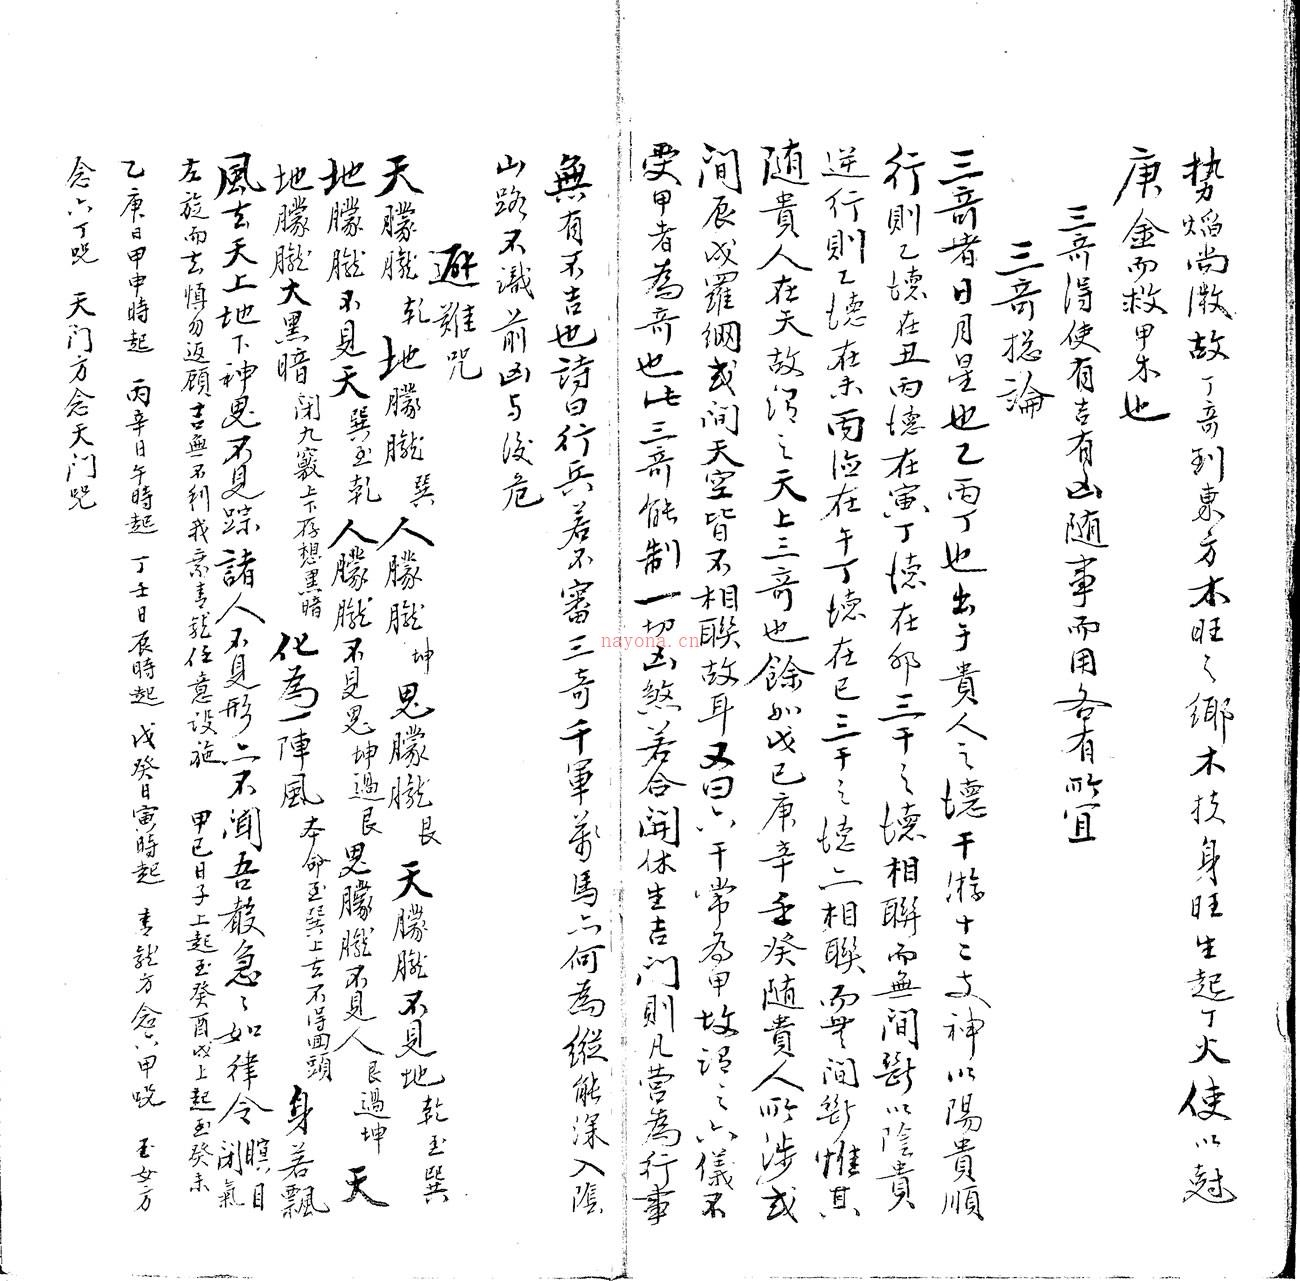 势焰尚微故丁竒到東方木旺之鄉木扶身旺生起丁火使以尅
庚金而救甲木也
三竒得使有吉有凶随事而用各有所宜
三竒捴論
三竒者日月星也乙丙丁也出于貴人之徳干游十二支神以陽貴順
行則乙徳在丑丙徳在寅丁徳在卯三干之徳相聨而無间斷以陰貴
逆行則乙徳在未丙徳在午丁徳在巳三干之徳亦相聫而無间斷惟其
随貴人在天故谓之天上三竒也餘如戊己庚辛壬癸随貴人所涉或
间辰戌羅網或间天空皆不相聫故耳又曰六干常為甲故谓之六儀不
受甲者為竒也此三竒能制一切凶煞若合開休生吉门則凡营為行事
無有不吉也詩曰行兵若不審三竒千軍萬馬亦何為縱能深入陰
山路不識前凶与後危
避難咒
天朦朧乾地朦朧巽人朦朧坤鬼朦朧艮天朦朧不見地乾至巽
地朦朧不見天巽至乾人朦朧不見鬼坤過艮鬼朦朧不見人艮過坤天
地朦朧大黑暗闭九竅上下存想黑暗化為一陣風本命至巽上去不得回頭身若飄
風去天上地下神鬼不見踪諸人不見形亦不闻吾敎急々如律令瞑目闭氣
左旋而去慎勿返顧吉無不利我亲青龍任意设施甲己日子上起至癸酉戌上起至癸未
乙庚日甲申時起丙辛日午時起丁壬日辰時起戊癸日寅時起青龍方念六甲咒玉女方
念六丁咒天门方念天门咒
nayona.cn